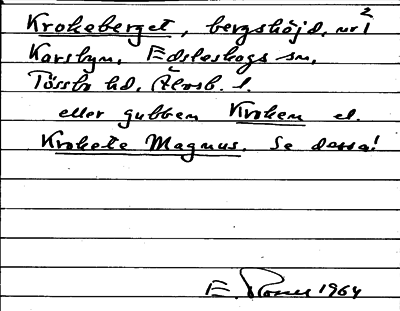 Krokeberget, bergshöjd, nr 1²
Korsbyn, Edsleskogs sn,
Tössbo hd, Älvsb. l.
eller gubben Kroken el.
Krokete Magnus. Se dessa!
E. 1964